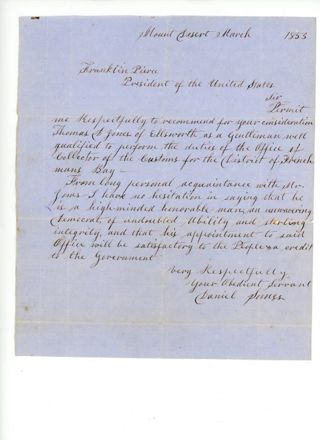 Mount Desert March 1853
Franklin Pierce
President of the United States
Sir
Permit
me Respectfully to recommend for your consideration
Thomas D Jones of Ellsworth as a Gentleman well
qualified to perform the duties of the Office of
Collector of the Customs for the District of French
mans Bay —
From long personal acquaintance with Mr.
Jones I have no hesitation in saying that he
is a high-minded honorable man, an unwavering
Democrat, of undoubted Ability and sterling
integrity, and that his appointment to said
Office will be satisfactory to the People & a credit
to the Government
Very Respectfully
Your Obedient Servant
Daniel Somes